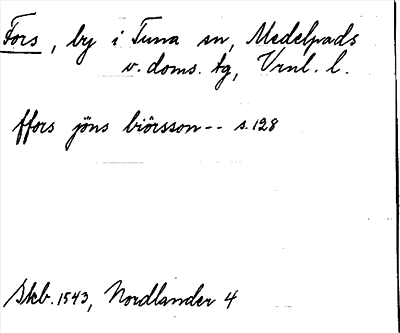 Fors, by i Tuna sn, Medelpads
v. doms. tg, Vrnl. l.
ffors jöns biörsson-- s. 128
Skb. 1543, Nordlander 4